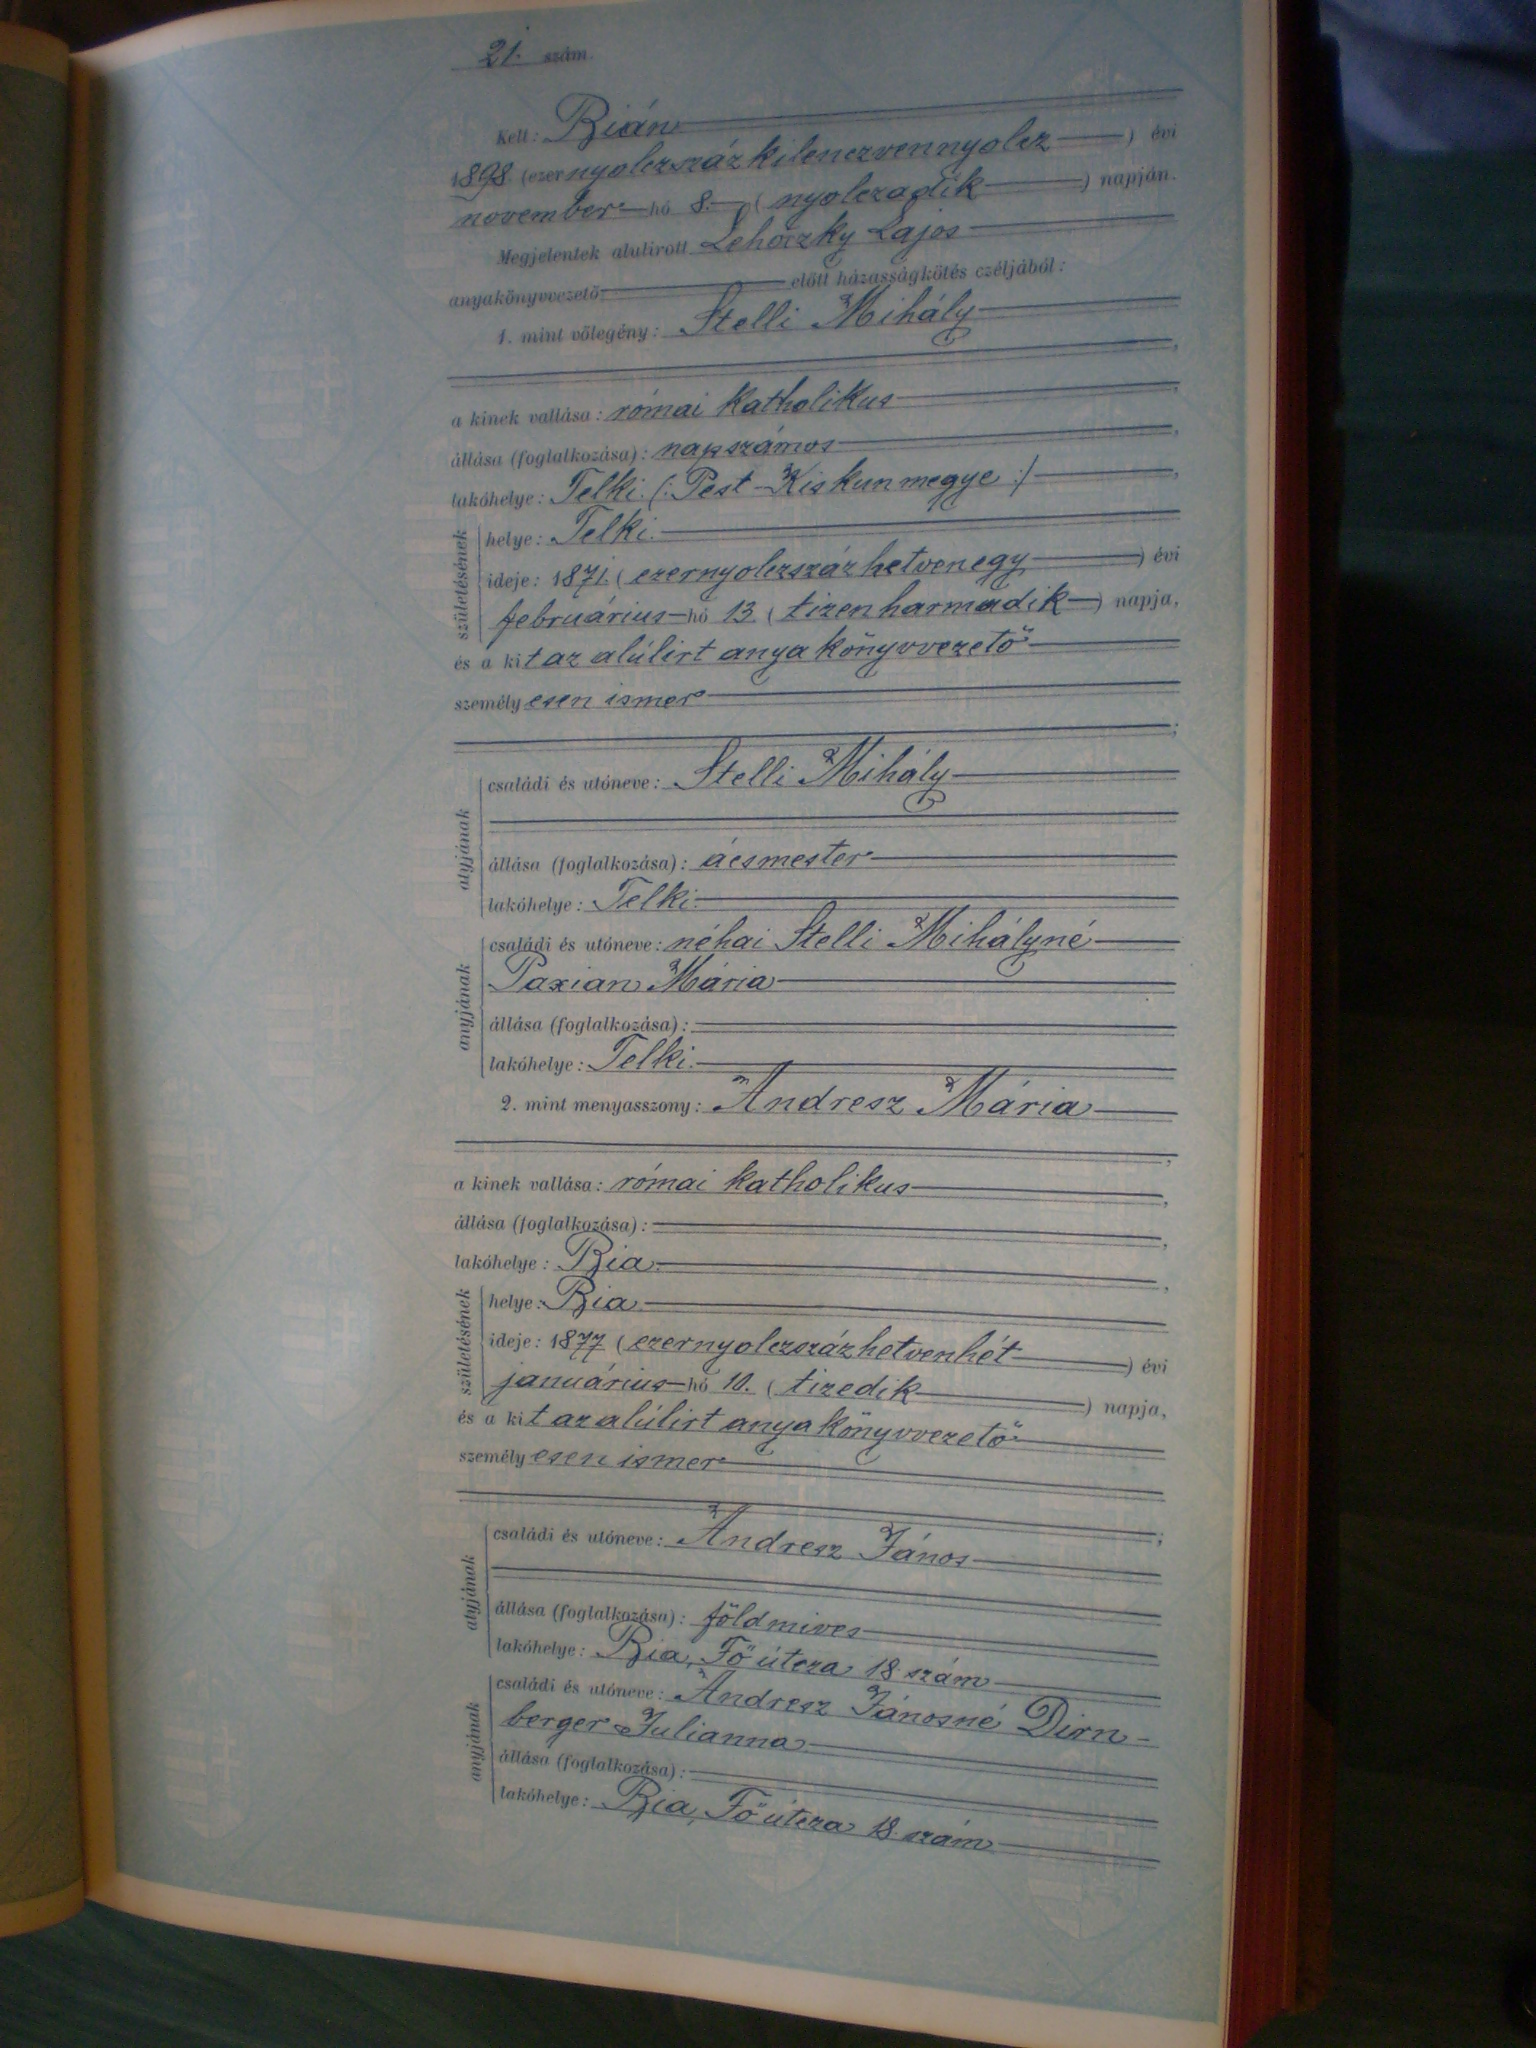 21. szám.
Kelt: Bián
1898. (ezernyolczszázkilenczvennyolcz) évi
november hó 8. (nyolczadik) napján.
Megjelentek alulirott Lehoczky Lajos
anyakönyvvezető előtt házasságkötés czéljából:
1. mint vőlegény: Stelli Mihály
a kinek vallása: római katholikus,
állása (foglalkozása): napszámos,
lakóhelye: Telki (: Pest-Kiskunmegye :),
születésének
helye: Telki.
ideje: 1871. (ezernyolczszázhetvenegy) évi
februárius hó 13. (tizenharmadik) napja,
és a kit az alúlirt anyakönyvvezető
személyesen ismer;
atyjának
családi és utóneve: Stelli Mihály
állása (foglalkozása): ácsmester
lakóhelye: Telki.
anyjának
családi és utóneve: néhai Stelli Mihályné
Paxian Mária
állása (foglalkozása):
lakóhelye: Telki.
2. mint menyasszony: Andresz Mária
,
a kinek vallása: római katholikus,
állása (foglalkozása): ,
lakóhelye: Bia.,
születésének
helye: Bia.
ideje: 1877 (ezernyolczszázhetvenhét) évi
januárius hó 10. (tizedik) napja,
és a kit az alúlirt anyakönyvvezető
személyesen ismer
;
atyjának
családi és utóneve: Andresz János
állása (foglalkozása): földmives
lakóhelye: Bia, Fő útcza 18. szám
anyjának
családi és utóneve: Andresz Jánosné Dirn-
berger Julianna.
állása (foglalkozása):
lakóhelye: Bia, Fő útcza 18. szám